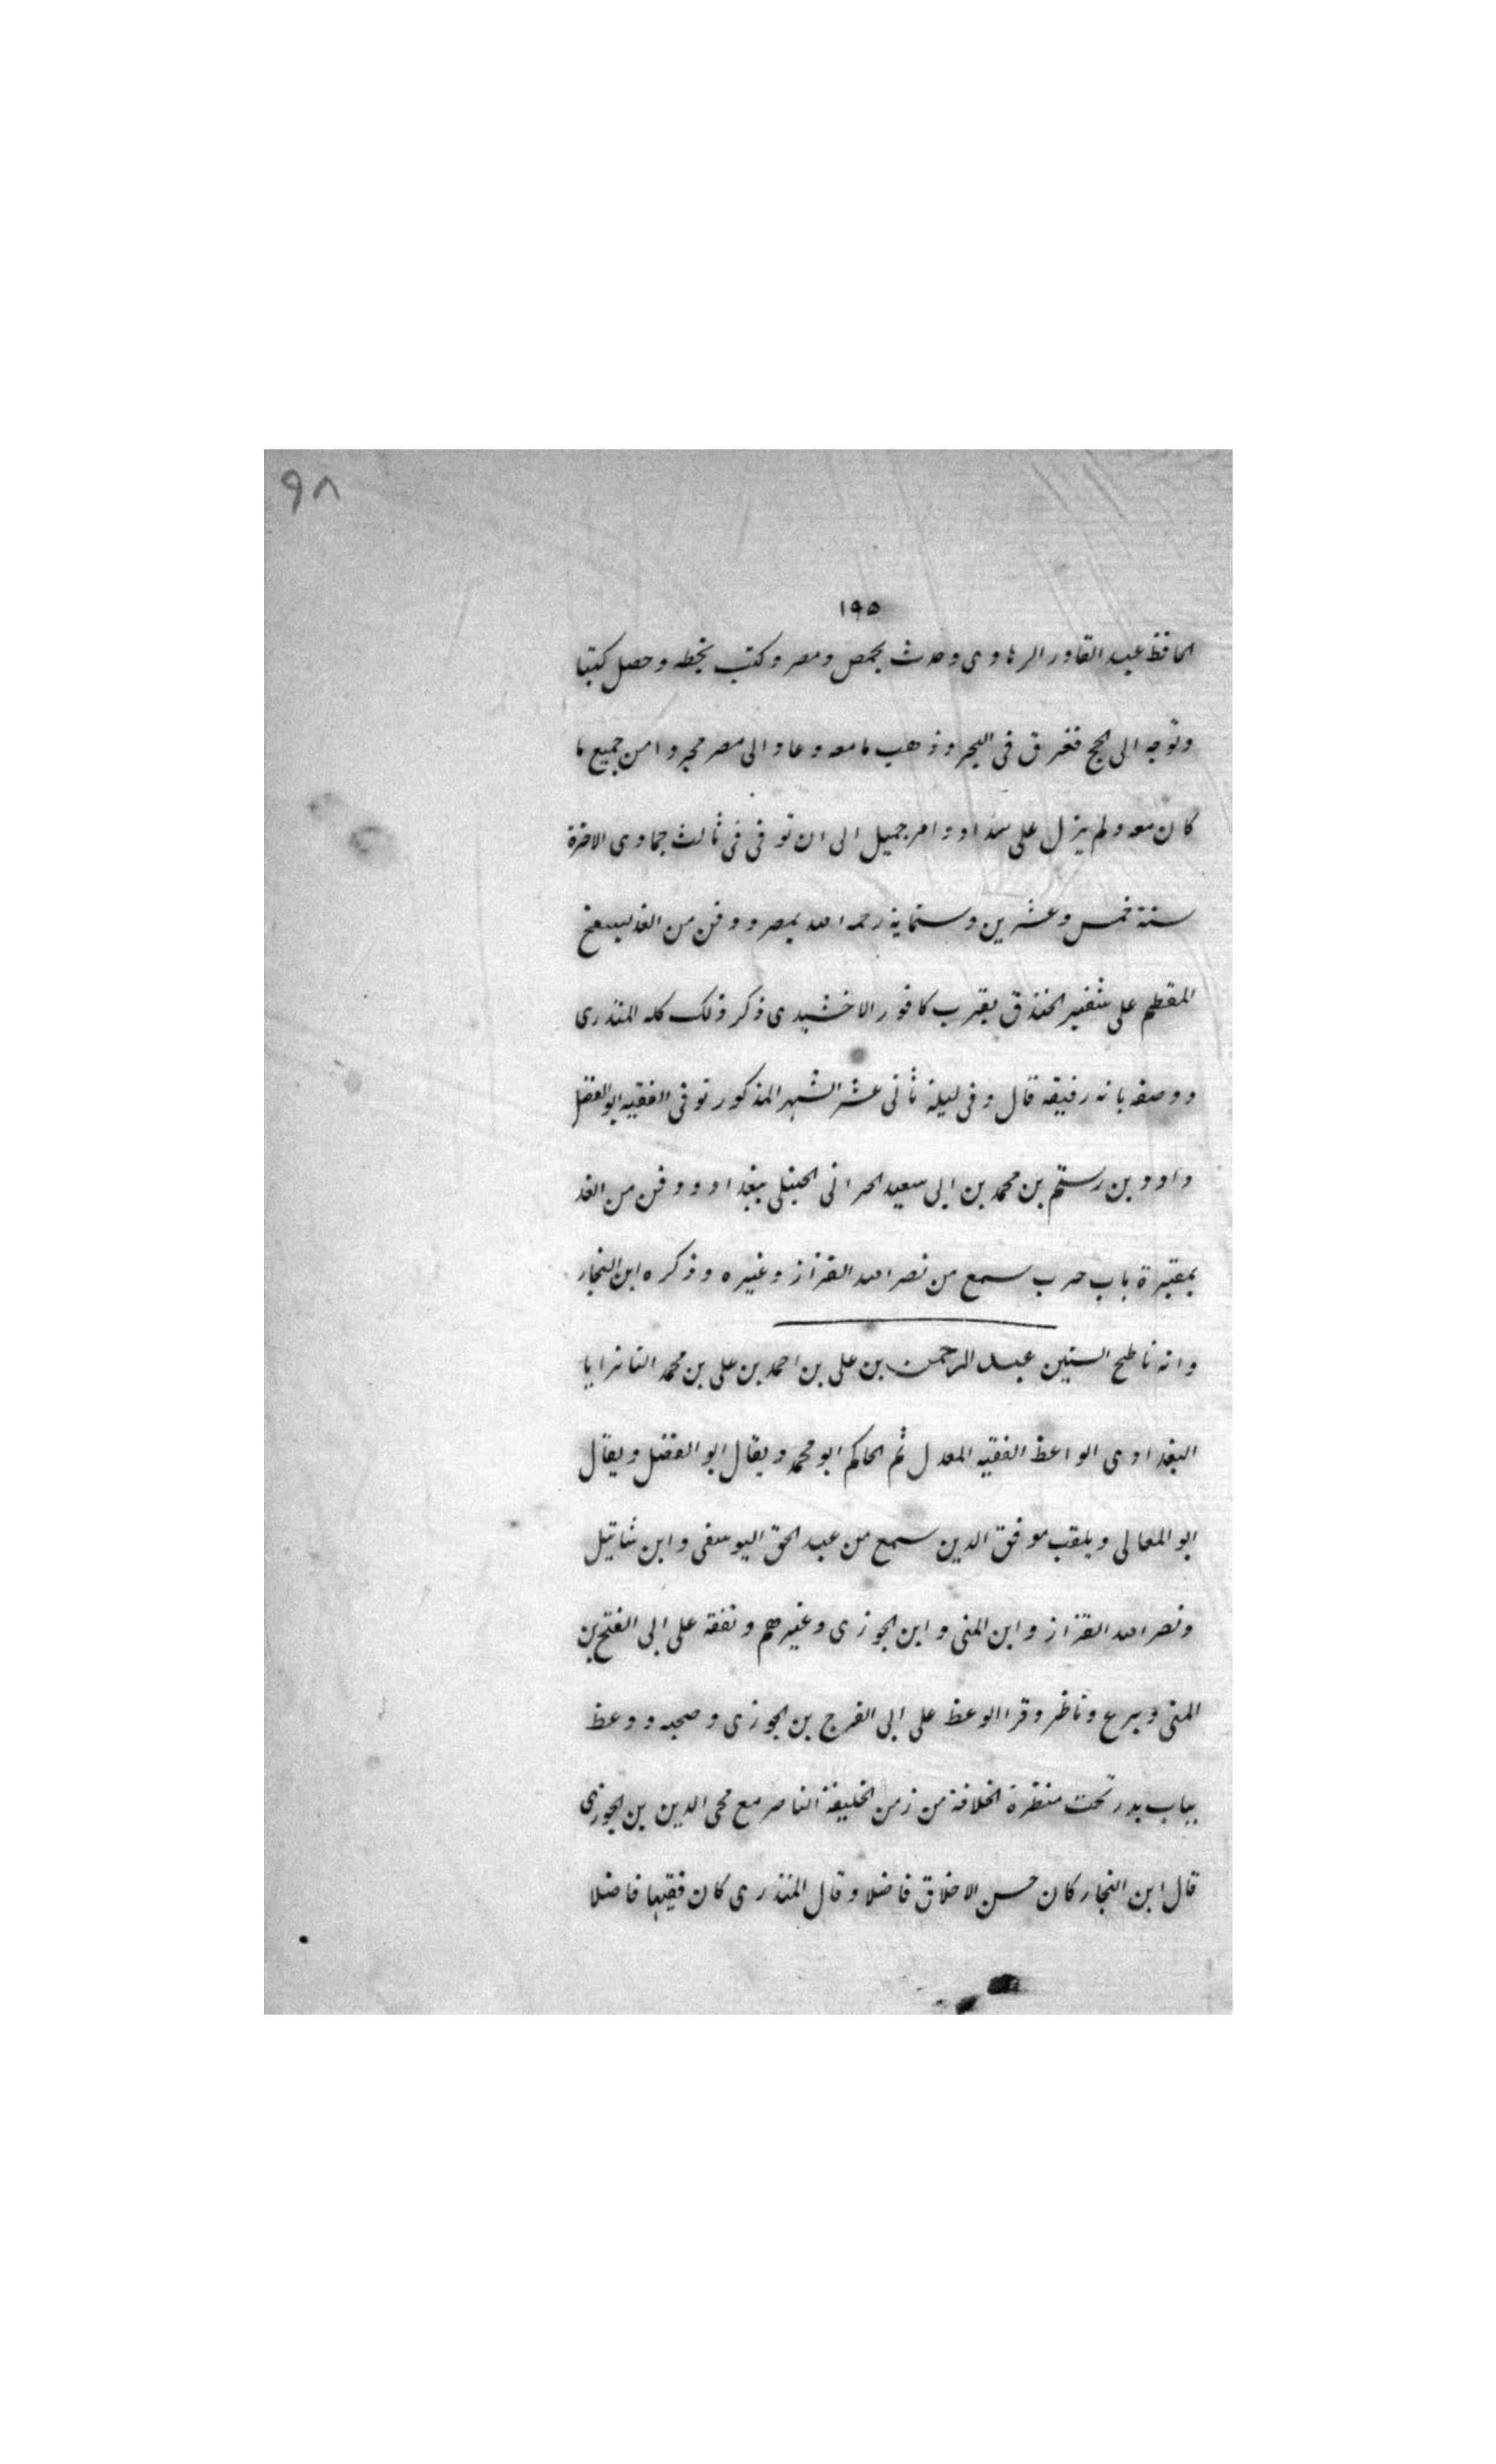 ٩٨
١٩٥
الحافظ عبد القادر الرهاوى وحدث بحمص ومصر وكتب بخطه وحصل كتبا
وتوجه الى الحج فغرق فى البحر وذهب ما معه وعاد الى مصر مجردا من جميع ما
كان معه ولم يزل على سداد وامر جميل الى ان توفى فى ثالث جمادى الاخرة
سنة خمس وعشرين وستماية رحمه الله بمصر ودفن من الغد بسفح
المقطم على شفير الخندق بقرب كافور الاخشيدى ذكر ذلك كله المنذرى
ووصفه بانه رفيقه قال وفى ليلة ثانى عشر الشهر المذكور توفى الفقيه ابو الفضل
داود بن رستم بن محمد بن ابى سعيد الحرانى الحنبلى ببغداد ودفن من الغد
بمقبرة باب حرب سمع من نصر الله القزاز وغيره وذكره ابن النجار
وانه ناطح الستين عبد الرحمن بن على بن احمد بن على بن محمد التانرايا
البغدادى الواعظ الفقيه المعدل ثم الحاكم ابو محمد ويقال ابو الفضل ويقال
ابو المعالى ويلقب موفق الدين سمع من عبد الحق اليوسفى وابن شاتيل
ونصر الله القزاز وابن المنى وابن الجوزى وغيرهم وتفقه على ابى الفتح بن
المنى وبرع وناظر وقرا الوعظ على ابى الفرج بن الجوزى وصحبه ووعظ
بباب بدر تحت منظرة الخلافة من زمن الخليفة الناصر مع محى الدين بن الجوزى
قال ابن النجار كان حسن الاخلاق فاضلا وقال المنذرى كان فقيها فاضلا